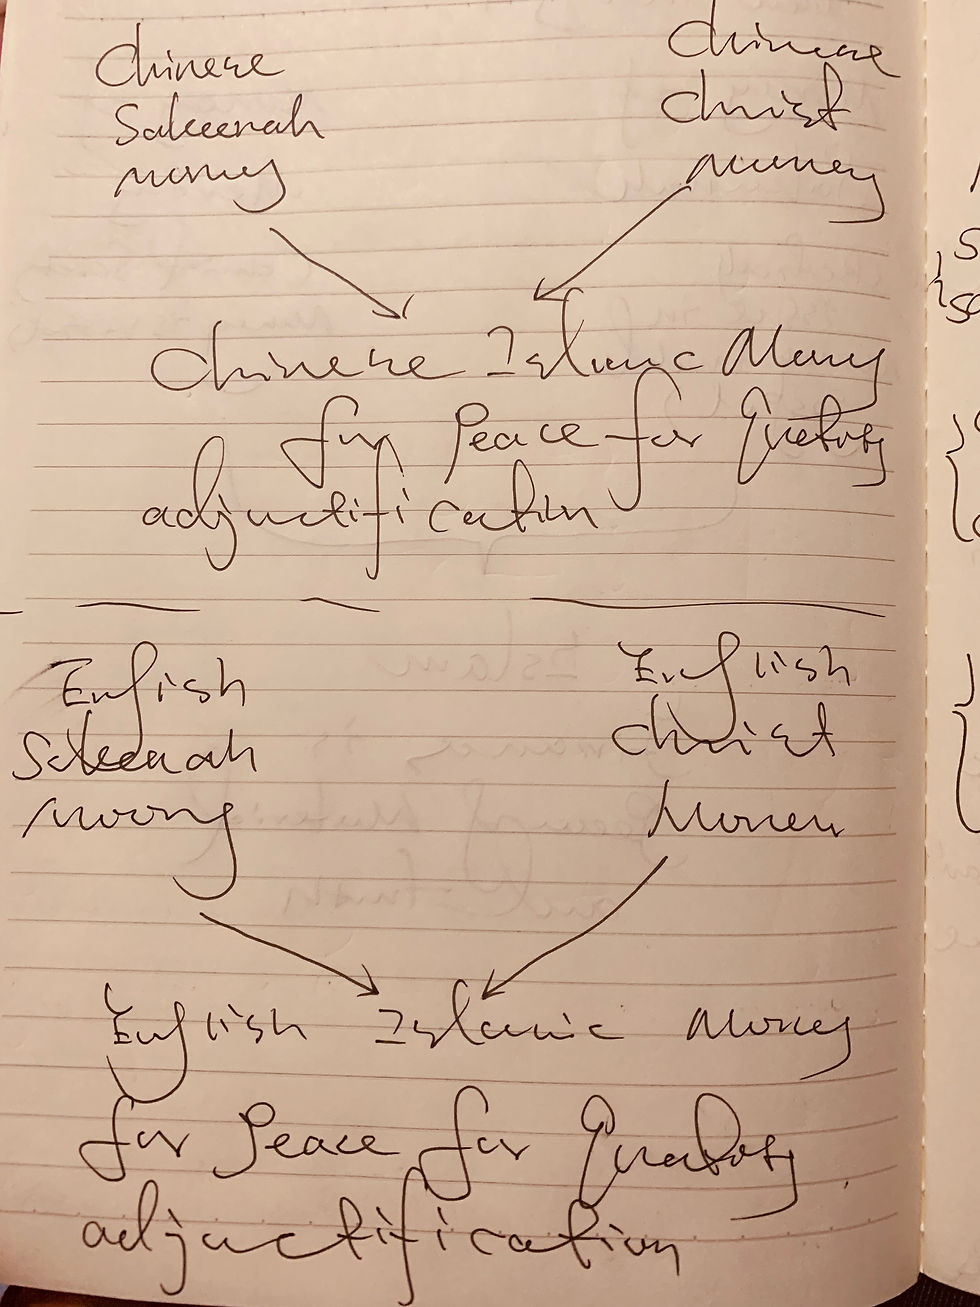 Chinese
Sakeenah
money
Chinese
Christ
money
Chinese Islamic Money
for Peace for
adjuctification
English
Sakeenah
money
English
Christ
Money
English Islamic Money
for Peace for
adjuctification